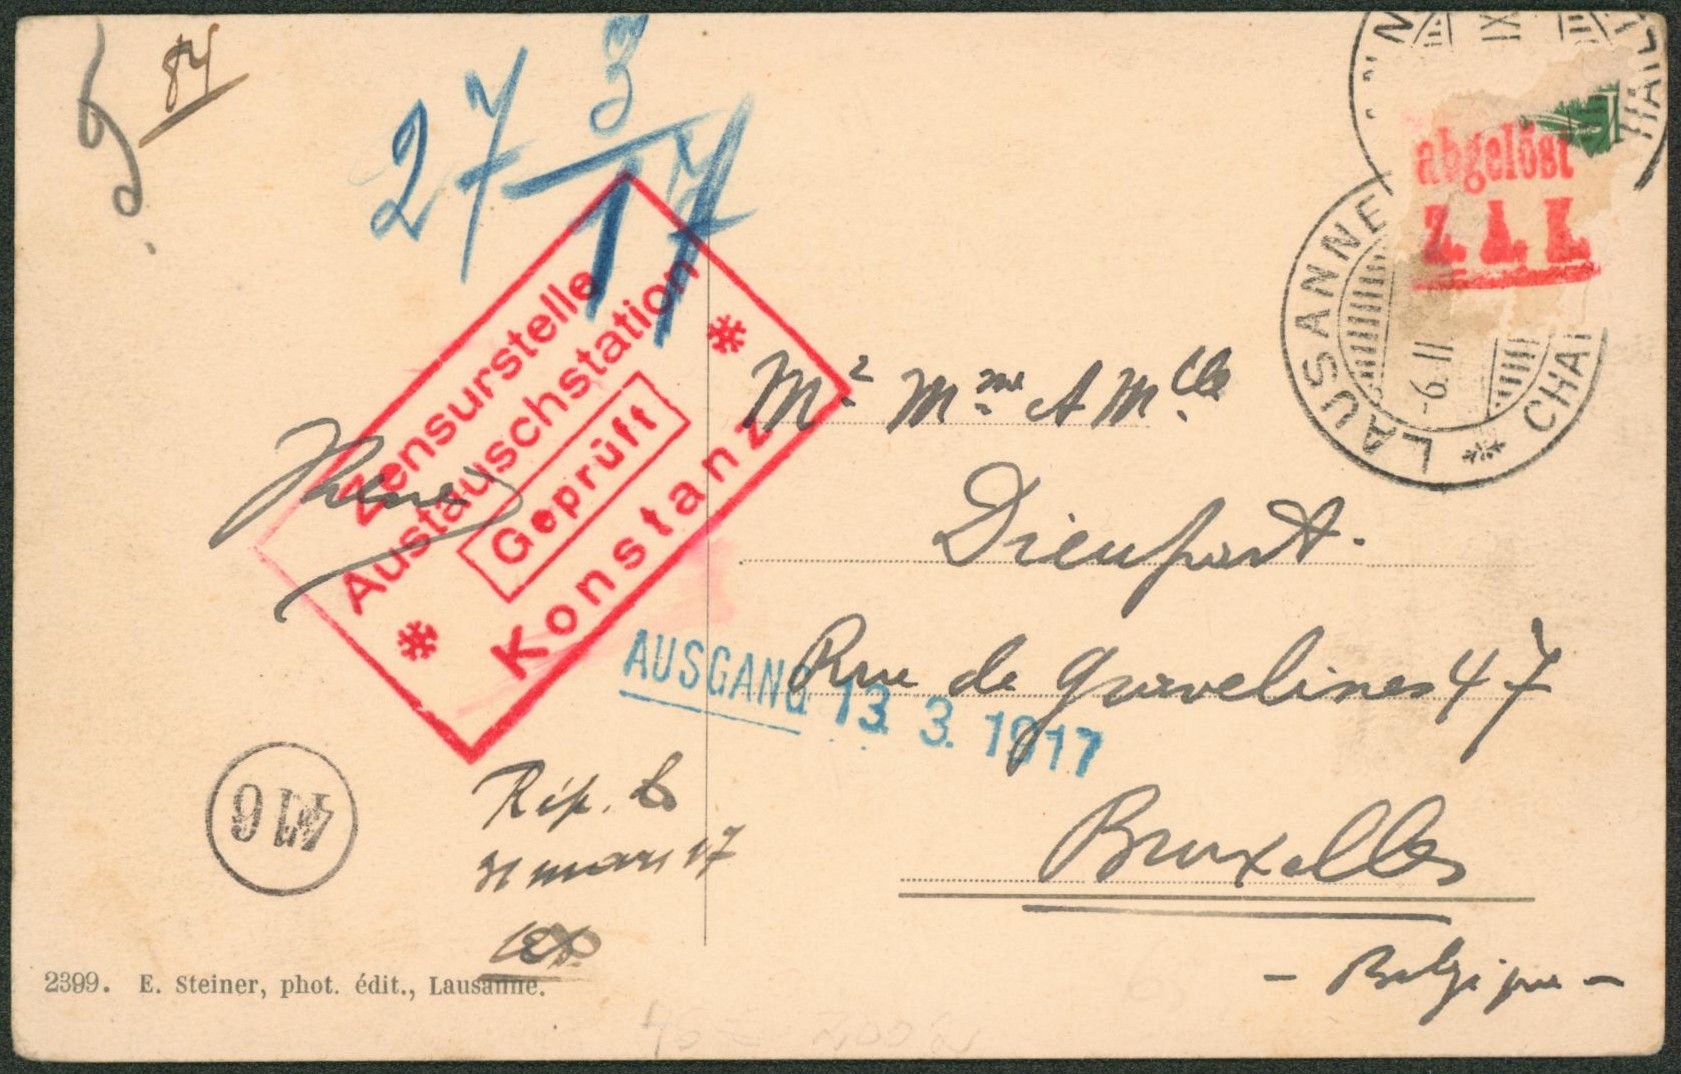 84
27 3/17
abgelöst
Z. A. K.
LAUSANNE * CHAI
9-II
Zensurstelle
Austauschstation
Geprüft
* Konstanz *
Mr Mme & Mlle
Dieupart.
Rue de Gravelines 47
AUSGANG 13. 3. 1917
Bruxelles
- Belgique -
416
Rép. le
31 mars 17
2399. E. Steiner, phot. édit., Lausanne.